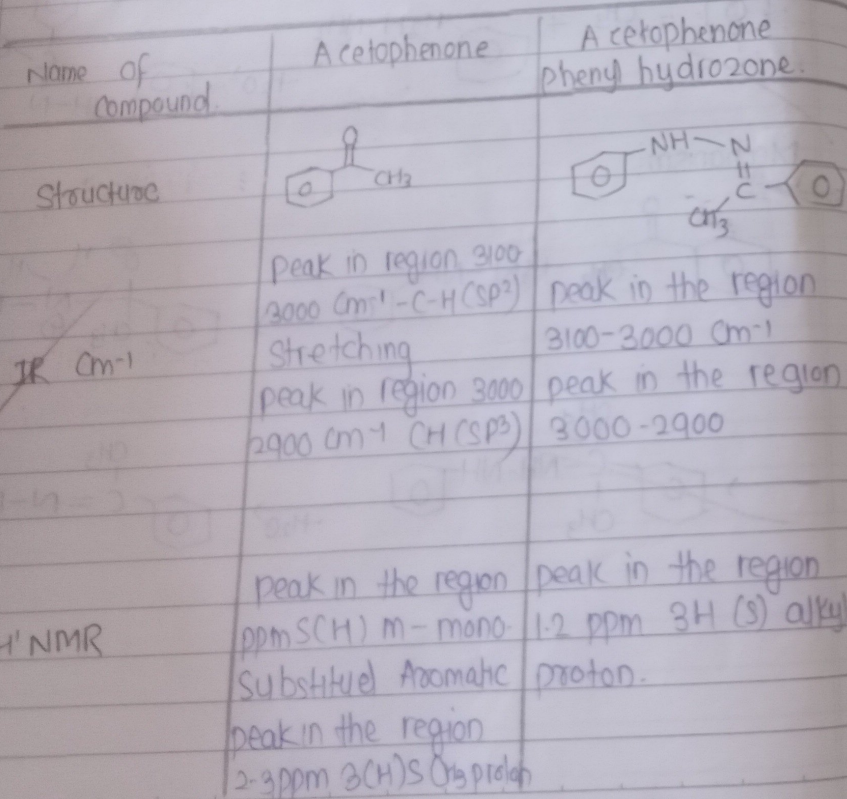 Name of
compound.
Acetophenone
Acetophenone
phenyl hydrozone.
Structure
O
CH3
NH-N
C
CH3
IR Cm-1
peak in region 3100
3000 Cm-1 -C-H (SP2)
Stretching
peak in region 3000
2900 cm-1 CH (SP3)
peak in the region
3100-3000 Cm-1
peak in the region
3000-2900
H' NMR
peak in the region
ppm 5(H) m-mono.
substitued Aromatic
peak in the region
2-3ppm 3(H)S CH3 proton
peak in the region
1.2 ppm 3H (s) alkyl
proton.